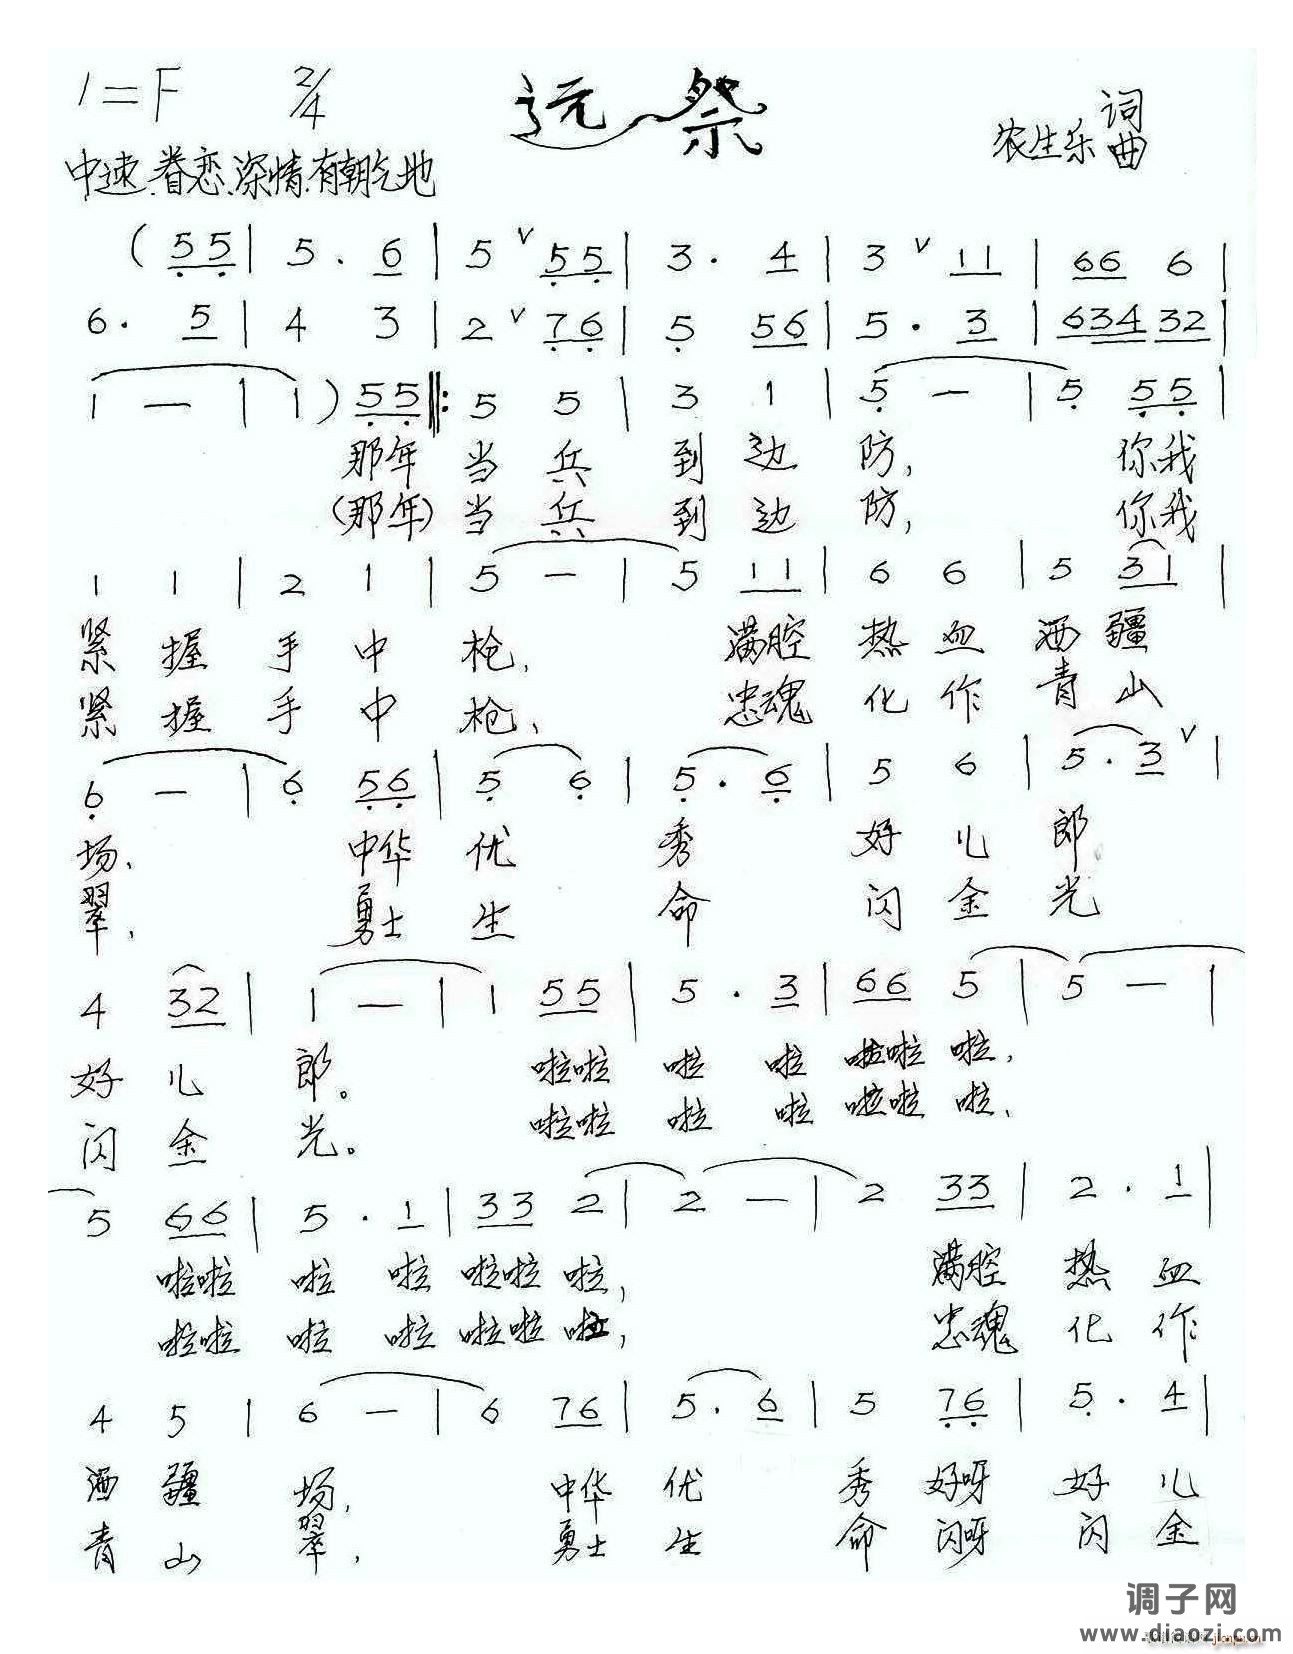 1=F 2/4 远祭 农生乐 词曲
中速、眷恋、深情、有朝气地
( 5 5 | 5 . 6 | 5 ∨ 5 5 | 3 . 4 | 3 ∨ 1 1 | 6 6 6 |
6 . 5 | 4 3 | 2 ∨ 7 6 | 5 5 6 | 5 . 3 | 6 3 4 3 2 |
1 — | 1 ) 5 5 ‖: 5 5 | 3 1 | 5 — | 5 5 5 |
那年 当 兵 到 边 防, 你我
(那年) 当 兵 到 边 防, 你我
1 1 | 2 1 | 5 — | 5 1 1 | 6 6 | 5 3 1 |
紧 握 手 中 枪, 满腔 热 血 洒 疆
紧 握 手 中 枪, 忠魂 化 作 青 山
6 — | 6 5 6 | 5 6 | 5 . 6 | 5 6 | 5 . 3 ∨ |
场、 中华 优 秀 好 儿 郎
翠, 勇士 生 命 闪 金 光
4 3 2 | 1 — | 1 5 5 | 5 . 3 | 6 6 5 | 5 — |
好 儿 郎。 啦啦 啦 啦 啦啦 啦,
闪 金 光。 啦啦 啦 啦 啦啦 啦,
5 6 6 | 5 . 1 | 3 3 2 | 2 — | 2 3 3 | 2 . 1 |
啦啦 啦 啦 啦啦 啦, 满腔 热 血
啦啦 啦 啦 啦啦 啦, 忠魂 化 作
4 5 | 6 — | 6 7 6 | 5 . 6 | 5 7 6 | 5 . 4 |
洒 疆 场, 中华 优 秀 好呀 好 儿
青 山 翠, 勇士 生 命 闪呀 闪 金
调子网
www.diaozi.com